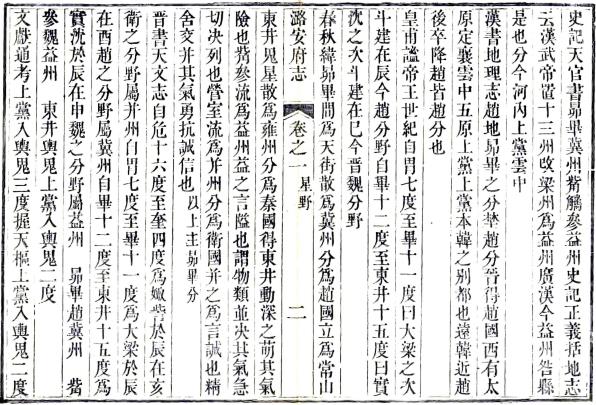 史記天官書昴畢冀州觜觿參益州史記正義括地志
云漢武帝置十三州改梁州爲益州廣漢今益州咎縣
是也分今河内上黨雲中
漢書地理志趙地昴畢之分壄趙分晉得趙國西有太
原定襄雲中五原上黨上黨本韓之别都也遠韓近趙
後卒降趙皆趙分也
皇甫謐帝王世紀自胃七度至畢十一度曰大梁之次
斗建在辰今趙分野自畢十二度至東井十五度曰實
沈之次斗建在巳今晉魏分野
春秋緯昴畢間爲天街散爲冀州分爲趙國立爲常山
潞安府志
卷之一
星野
二
東井鬼星散爲雍州分爲秦國得東井動深之萌其氣
險也觜參流爲益州益之言隘也謂物類並决其氣急
切决列也營室流爲并州分爲衛國并之爲言誠也精
舍交并其氣勇抗誠信也 以上主昴畢分
晉書天文志自危十六度至奎四度爲娵訾於辰在亥
衛之分野屬并州自胃七度至畢十一度爲大梁於辰
在酉趙之分野屬冀州自畢十二度至東井十五度爲
實沈於辰在申魏之分野屬益州 昴畢趙冀州 觜
參魏益州 東井輿鬼上黨入輿鬼二度
文獻通考上黨入輿鬼三度握天樞上黨入輿鬼二度